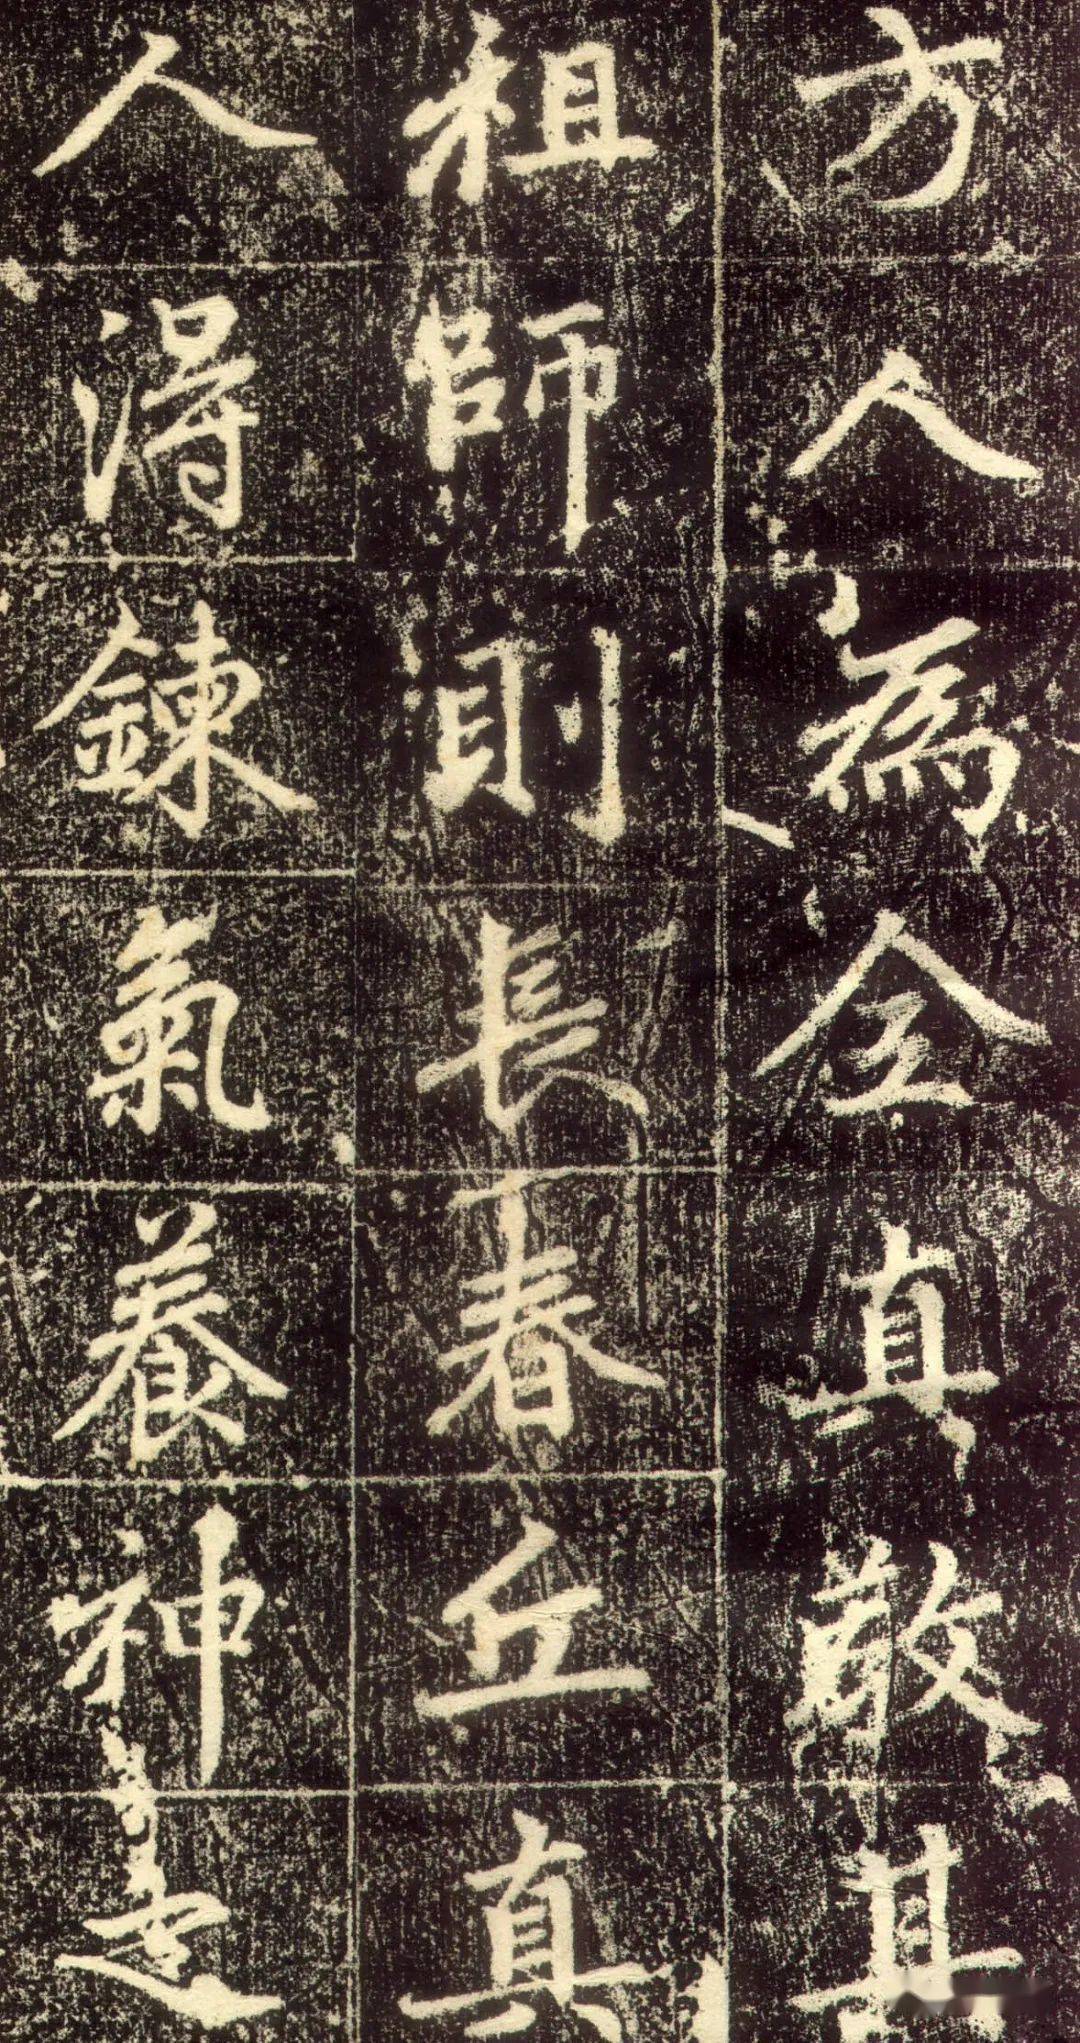 方人為全真教其
祖師則長春丘真
人得鍊氣養神之